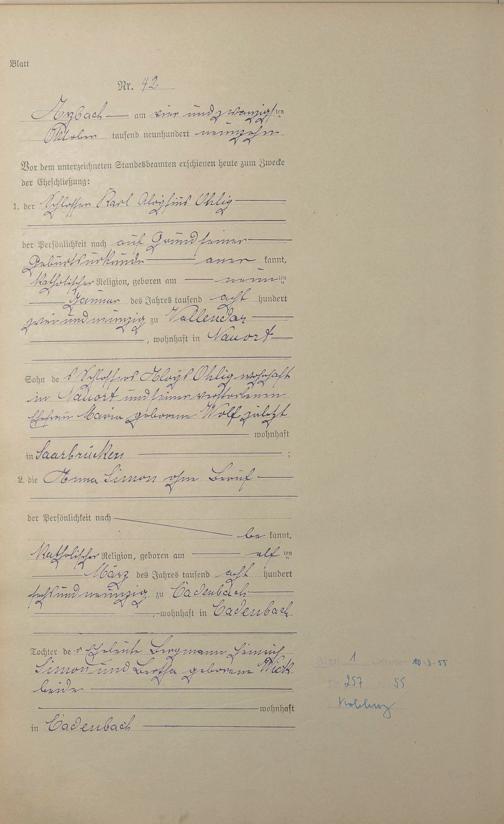 Blatt
Nr. 42
Arzbach am vier und zwanzigsten
Oktober tausend neunhundert neunzehn
Vor dem unterzeichneten Standesbeamten erschienen heute zum Zwecke
der Eheschließung:
1. der Schlosser Karl Aloysius Ohlig
der Persönlichkeit nach auf Grund seiner
Geburtsurkunde aner kannt,
katholischer Religion, geboren am neun ten
Januar des Jahres tausend acht hundert
zwei und neunzig zu Vallendar
, wohnhaft in Nauort
Sohn de s Schlossers Aloys Ohlig wohnhaft
in Nauort und seiner verstorbenen
Ehefrau Maria geborene Wolf zuletzt
wohnhaft
in Saarbrücken ;
2. die Anna Simon ohne Beruf
der Persönlichkeit nach
be kannt,
katholischer Religion, geboren am elf ten
März des Jahres tausend acht hundert
sechs und neunzig zu Cadenbach
, wohnhaft in Cadenbach
Tochter de r Eheleute Bergmann Heinrich
Simon und Bertha geborene
beide
wohnhaft
in Cadenbach
1 10.3.55
257 55
Koblenz